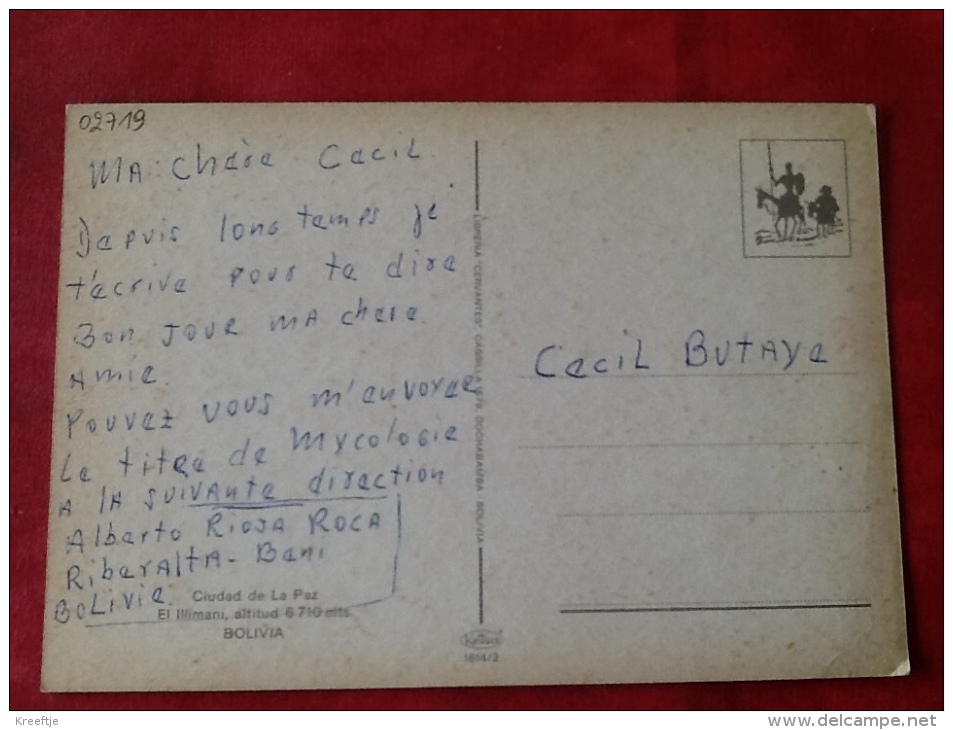 02719
MA Chère Cecil
Depuis long temps je
t'ecrive pour te dire
Bon Jour MA chere
Amie
Pouvez vous m'envoyer
Le titre de Mycologie
A lA suivante direction
Alberto RiojA ROCA
RiberAltA - Beni
BOLivie.
Ciudad de La Paz
El Illimani, altitud 6 710 mts.
BOLIVIA
LIBRERIA "CERVANTES" CASILLA COCHABAMBA - BOLIVIA
1614/2
Cecil ButAye
Kreeftje
www.delcampe.net